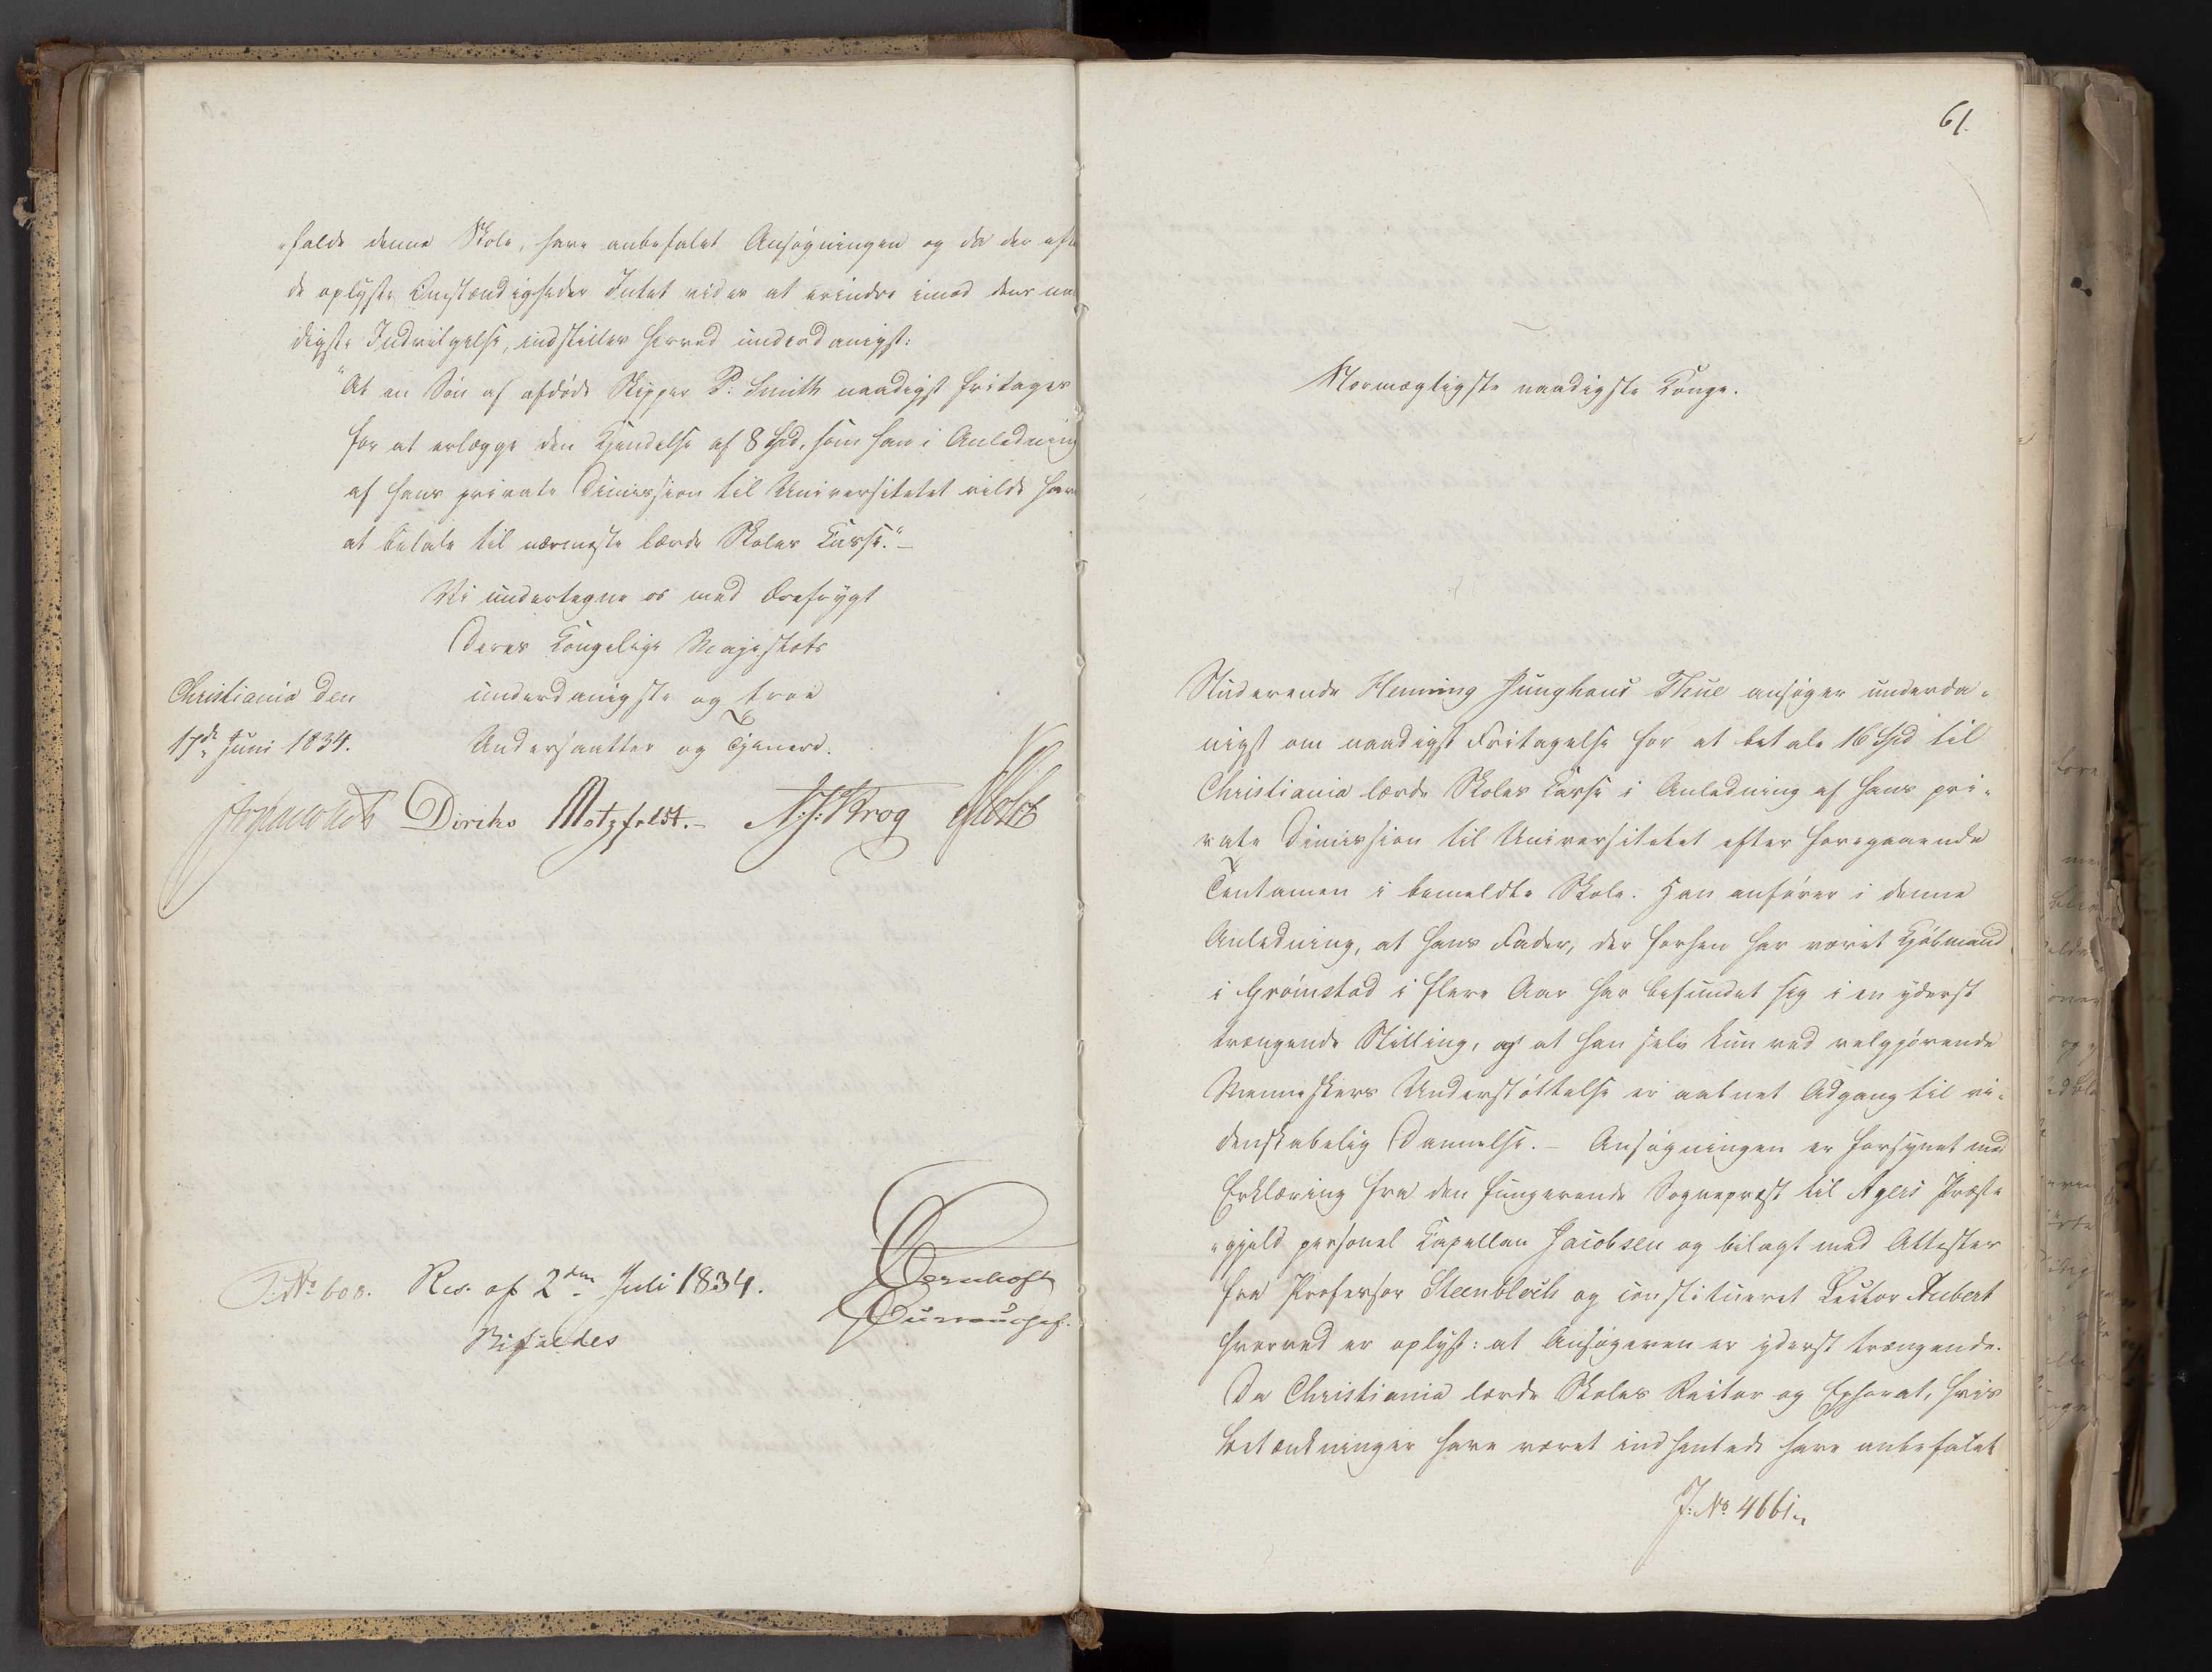 "falde denne Skole, have anbefalet Ansøgningen og da der efter
de oplyste Omstændigheder Intet vides at erindre imod dens naa
digste Indvilgelse, indstilles herved underdanigst:
"At en Søn af afdøde Skipper P: Smith naadigst fritages
for at erlægge den Kjendelse af 8 Spd, som han i Anledning
af hans private Dimission til Universitetet vilde have
at betale til nærmeste lærde Skoles Kasse."-
Vi undertegne os med Ærefrygt
Deres Kongelige Majestæts
Christiania den underdanigste og troe
17de Juni 1834. Undersaatter og Tjenere.
Diriks Motzfeldt.- N: J: Krog Holst
J. No 608. Res. af 2den Juli 1834.
Bifaldes
61.
Stormægtigste naadigste Konge.
Studerende Henning Junghans Thue ansøger underda-
nigst om naadigst Fritagelse for at betale 16 Spd til
Christiania lærde Skoles Kasse i Anledning af hans pri-
vate Dimission til Universitetet efter foregaaende
Tentamen i bemeldte Skole. Han anfører i denne
Anledning, at hans Fader, der forhen har været Kjøbmand
i Grimstad i flere Aar har befundet sig i en yderst
trængende Stilling, og at han selv kun ved velgjørende
Menneskers Understøttelse er aabnet Adgang til vi-
denskabelig Dannelse.- Ansøgningen er forsynet med
Erklæring fra den fungerende Sognepræst til Agers Præste
"gjeld personel Kapellan Jacobsen og bilagt med Attester
fra Professor Steenbloch og constitueret Lector Aubert
hvorved er oplyst: at Ansøgeren er yderst trængende.
Da Christiania lærde Skoles Rector og Ephorat, hvis
Betænkninger have været indhentede have anbefalet
J: No 4661